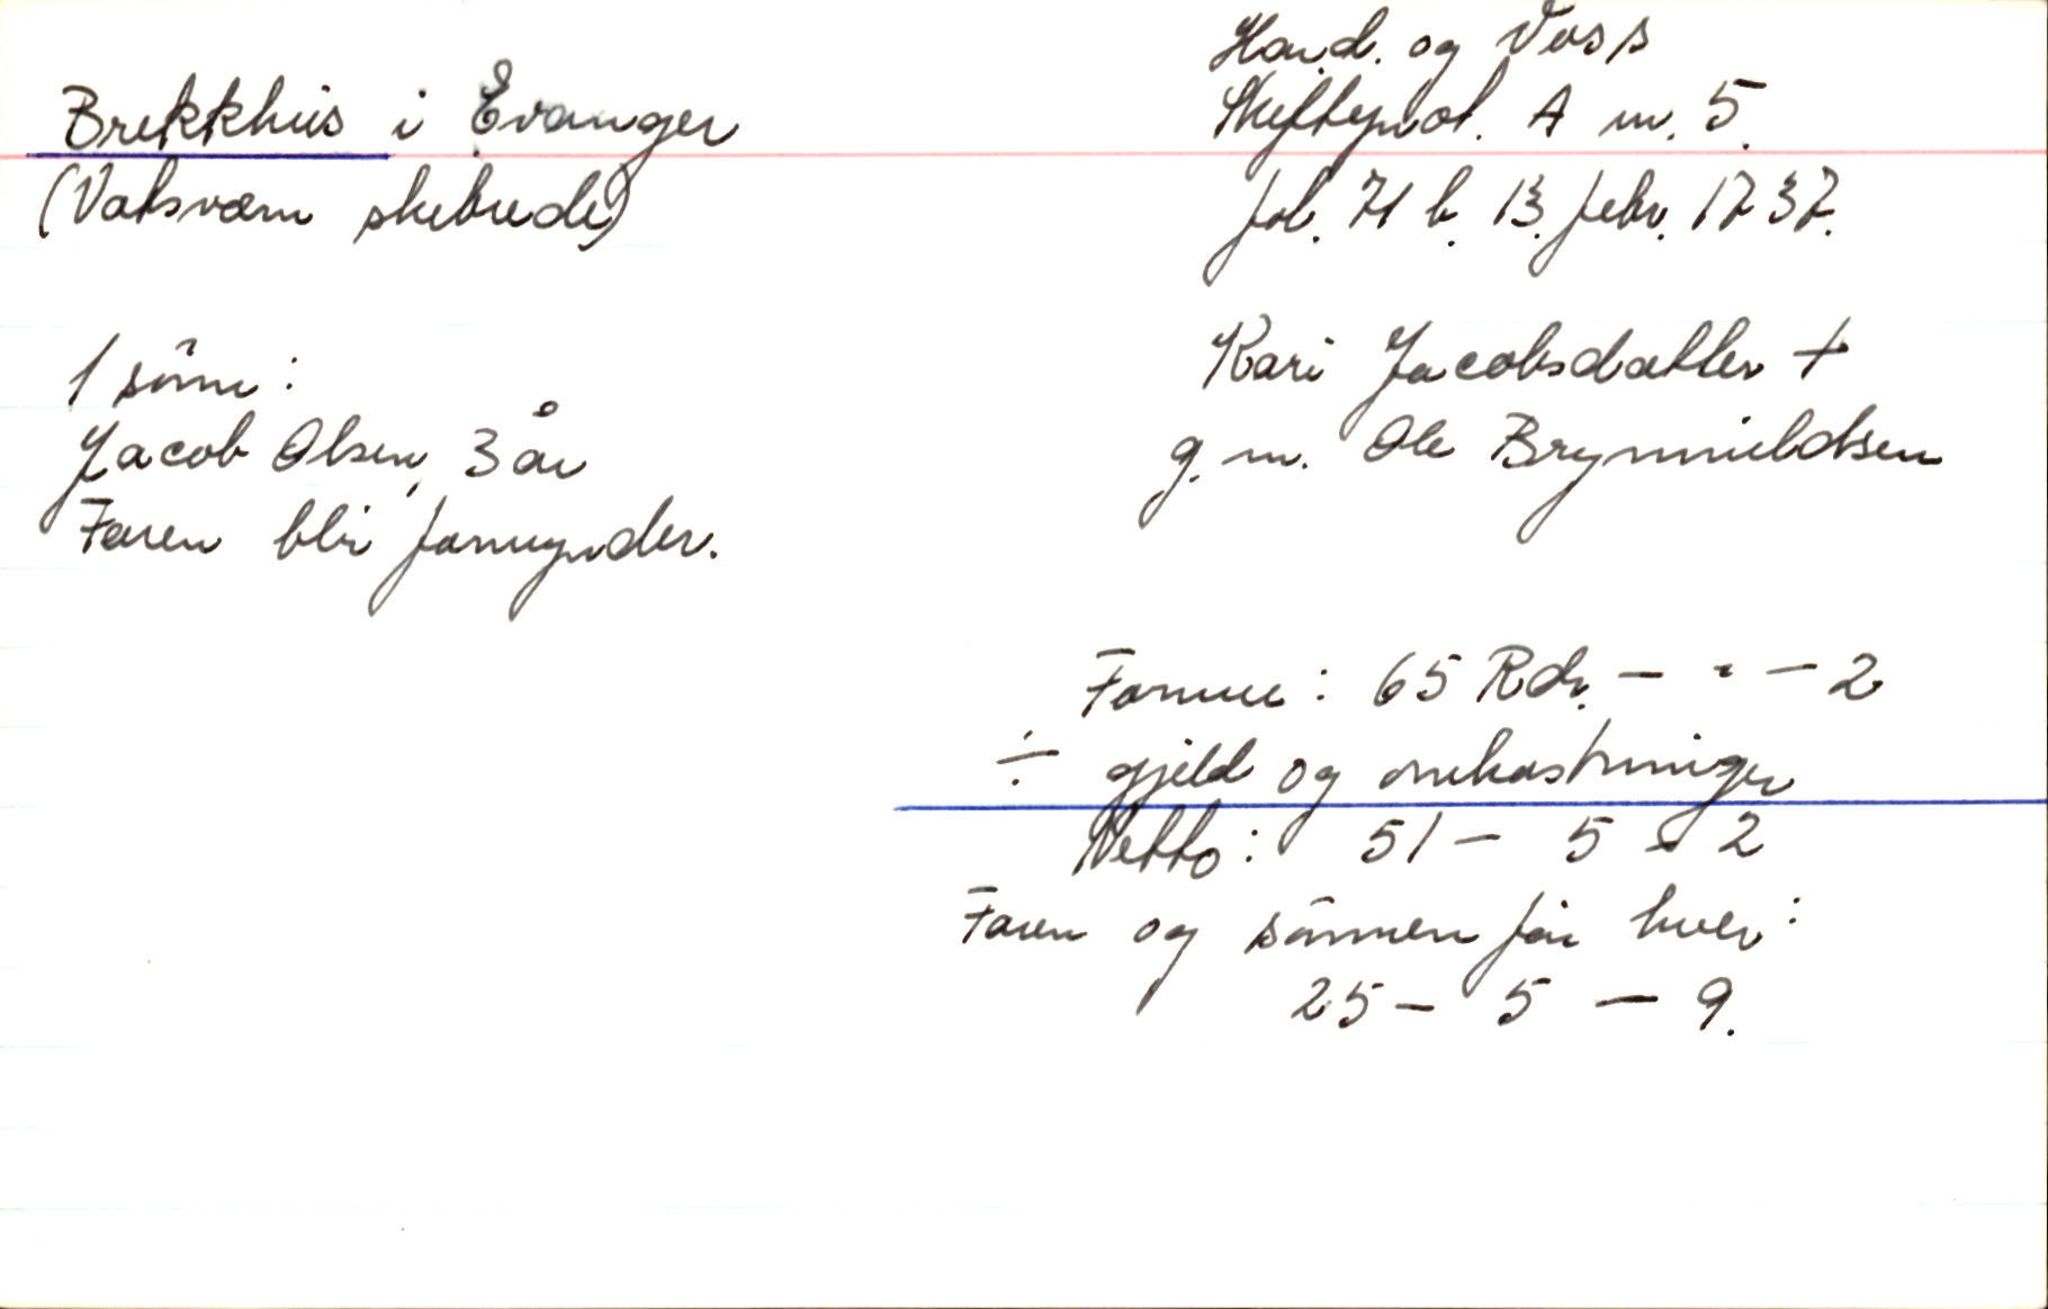 Hard. og Voss
Skifteprot. A nr. 5.
fol. 71 b. 13. febr. 1737.
Brekkhus i Evanger
(Vatsvørn skibrede)
Kari Jacobsdatter +
g. m. Ole Brynnieldsen
1 sönn:
Jacob Olsen, 3 år
Faren blir formynder.
Formue: 65 Rdr. - " - 2
÷ gjeld og omkostninger
Netto: 51 - 5 - 2
Faren og sönnen får hver:
25 - 5 - 9.